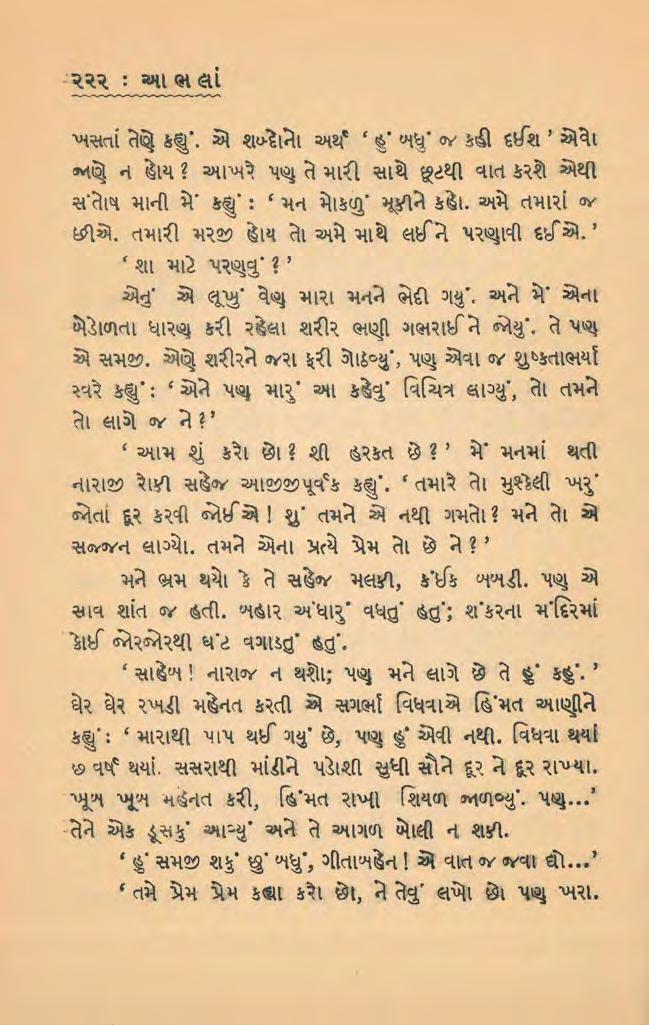 ૨૨૨ : આ ભ લાં
ખસતાં તેણે કહ્યું. એ શબ્દોનો અર્થ ‘ હું બધું જ કહી દઈશ ’ એવો
જાણે ન હોય ? આખરે પણ તે મારી સાથે છૂટથી વાત કરશે એથી
સંતોષ માની મેં કહ્યું : ‘ મન મોકળું મૂકીને કહો. અમે તમારાં જ
છીએ. તમારી મરજી હોય તો અમે માથે લઈને પરણાવી દઈએ. ’
‘ શા માટે પરણવું ? ’
એનું એ લૂખું વેણ મારા મનને ભેદી ગયું. અને મેં એના
બેડોળતા ધારણ કરી રહેલા શરીર ભણી ગભરાઈને જોયું. તે પણ
એ સમજી. એણે શરીરને જરા ફરી ગોઠવ્યું, પણ એવા જ શુષ્કતાભર્યા
સ્વરે કહ્યું : ‘ એને પણ મારું આ કહેવું વિચિત્ર લાગ્યું, તો તમને
તો લાગે જ ને ? ’
‘ આમ શું કરો છો ? શી હરકત છે ? ’ મેં મનમાં થતી
નારાજી રોકી સહેજ આજીજીપૂર્વક કહ્યું. ‘ તમારે તો મુશ્કેલી ખરું
જોતાં દૂર કરવી જોઈએ ! શું તમને એ નથી ગમતો ? મને તો એ
સજ્જન લાગ્યો. તમને એના પ્રત્યે પ્રેમ તો છે ને ? ’
મને ભ્રમ થયો કે તે સહેજ મલકી, કંઈક બબડી. પણ એ
સાવ શાંત જ હતી. બહાર અંધારું વધતું હતું; શંકરના મંદિરમાં
કોઈ જોરજોરથી ઘંટ વગાડતું હતું.
‘ સાહેબ ! નારાજ ન થશો; પણ મને લાગે છે તે હું કહું. ’
ઘેર ઘેર રખડી મહેનત કરતી એ સગર્ભા વિધવાએ હિંમત આણીને
કહ્યું : ‘ મારાથી પાપ થઈ ગયું છે, પણ હું એવી નથી. વિધવા થયાં
છ વર્ષ થયાં. સસરાથી માંડીને પડોશી સુધી સૌને દૂર ને દૂર રાખ્યા.
ખૂબ ખૂબ મહેનત કરી, હિંમત રાખી શિયળ જાળવ્યું. પણ...’
તેને એક ડૂસકું આવ્યું અને તે આગળ બોલી ન શકી.
‘ હું સમજી શકું છું બધું, ગીતાબહેન ! એ વાત જ જવા દ્યો...’
‘ તમે પ્રેમ પ્રેમ કહ્યા કરો છો, ને તેવું લખો છો પણ ખરા.